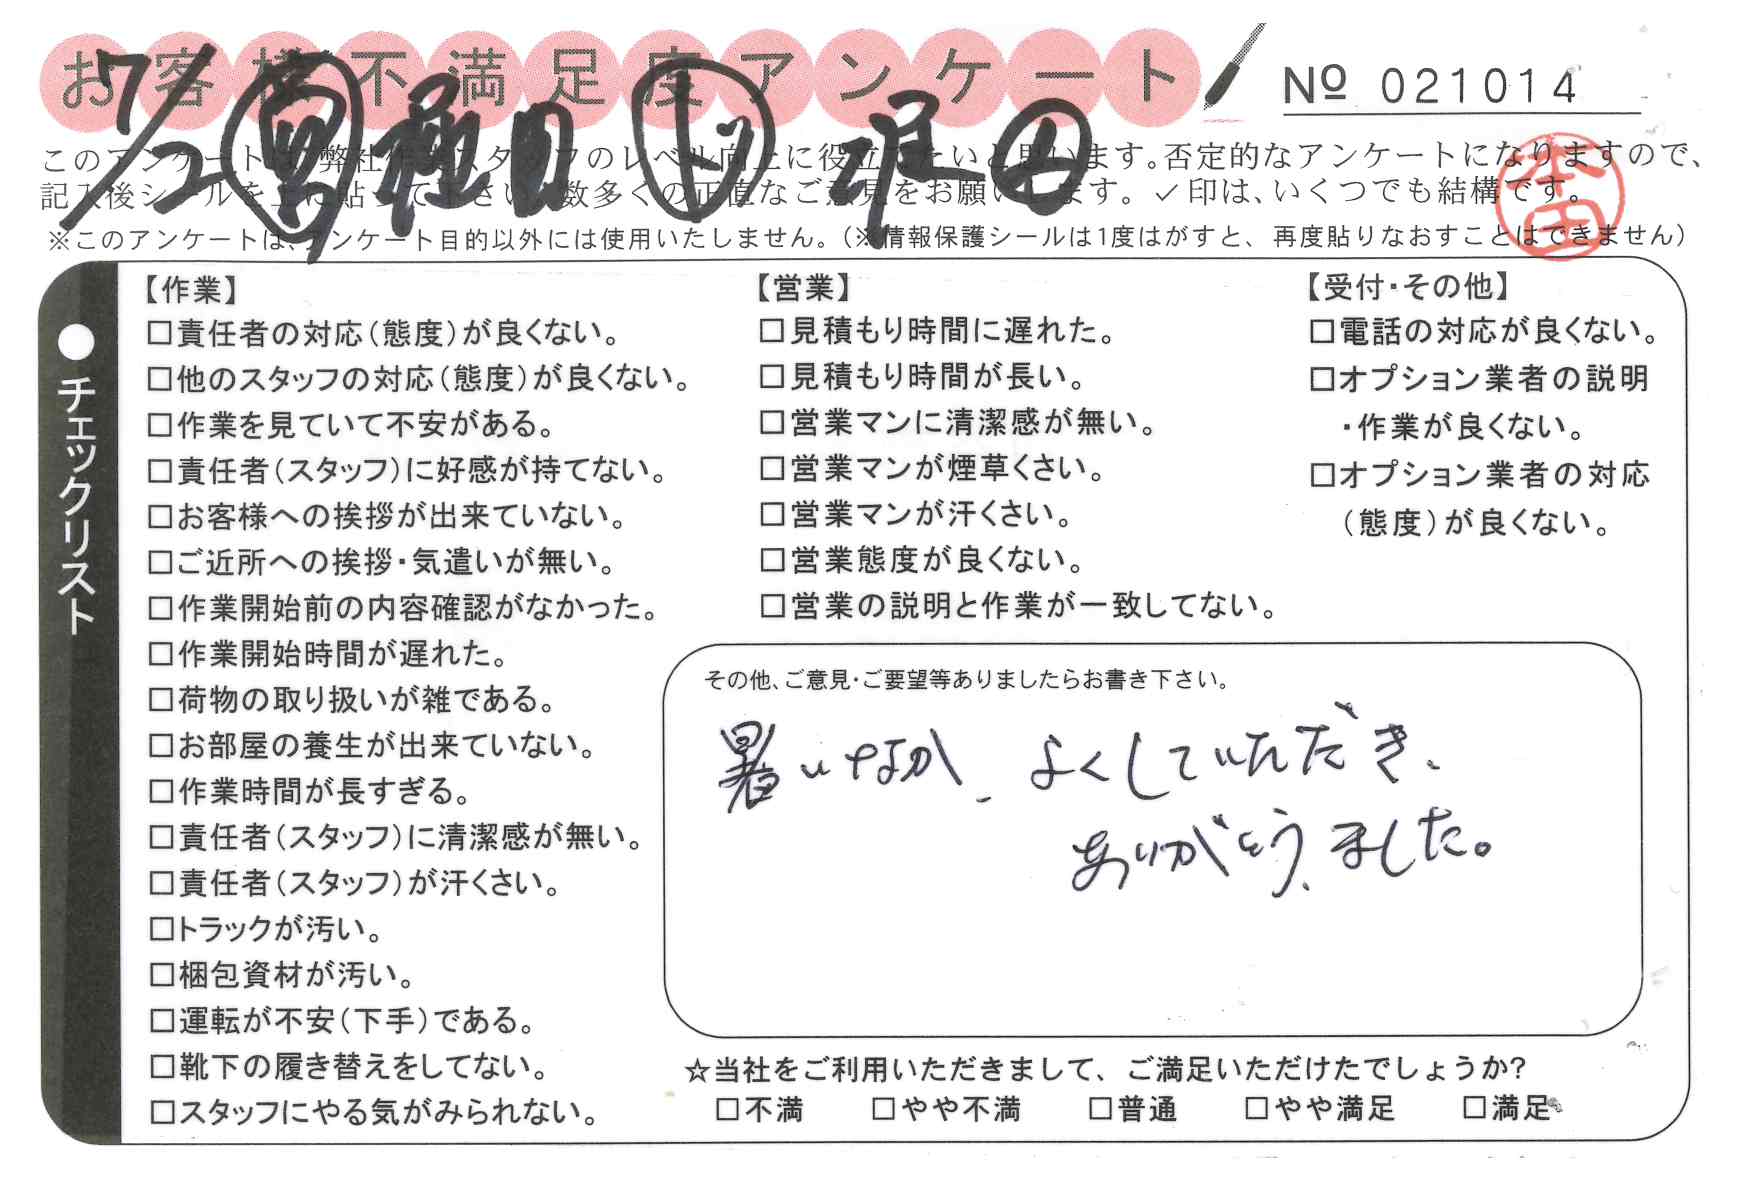 お客様不満足度アンケート
№ 021014
7/2
このアンケートは、弊社作業スタッフのレベル向上に役立てたいと思います。否定的なアンケートになりますので、
記入後シールを上に貼って下さい。数多くの正直なご意見をお願いします。✓印は、いくつでも結構です。
※このアンケートは、アンケート目的以外には使用いたしません。(※情報保護シールは1度はがすと、再度貼りなおすことはできません)
本田
●チェックリスト
【作業】
□責任者の対応(態度)が良くない。
□他のスタッフの対応(態度)が良くない。
□作業を見ていて不安がある。
□責任者(スタッフ)に好感が持てない。
□お客様への挨拶が出来ていない。
□ご近所への挨拶・気遣いが無い。
□作業開始前の内容確認がなかった。
□作業開始時間が遅れた。
□荷物の取り扱いが雑である。
□お部屋の養生が出来ていない。
□作業時間が長すぎる。
□責任者(スタッフ)に清潔感が無い。
□責任者(スタッフ)が汗くさい。
□トラックが汚い。
□梱包資材が汚い。
□運転が不安(下手)である。
□靴下の履き替えをしてない。
□スタッフにやる気がみられない。
【営業】
□見積もり時間に遅れた。
□見積もり時間が長い。
□営業マンに清潔感が無い。
□営業マンが煙草くさい。
□営業マンが汗くさい。
□営業態度が良くない。
□営業の説明と作業が一致してない。
【受付・その他】
□電話の対応が良くない。
□オプション業者の説明
・作業が良くない。
□オプション業者の対応
(態度)が良くない。
その他、ご意見・ご要望等ありましたらお書き下さい。
暑いなか、よくしていただき、
ありがとうました。
☆当社をご利用いただきまして、ご満足いただけたでしょうか?
□不満 □やや不満 □普通 □やや満足 □満足